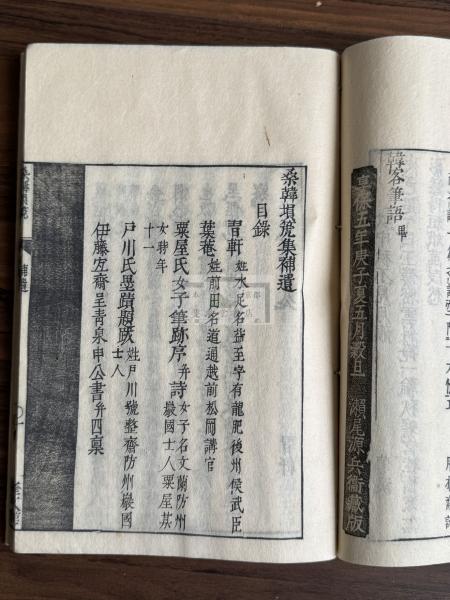 韓客筆語 畢
享保五年庚子夏五月穀旦 瀬尾源兵衛蔵版
桑韓塤篪集補遺
目録
胄軒 姓水足名益至字有龍肥後州候武臣
葉菴 姓前田名道通越前松岡講官
粟屋氏女子筆跡序并詩 女子名文蘭防州巖國士人粟屋某女時年十一
戸川氏墨蹟題跋 姓戸川號整齋防州巖國士人
伊藤宜齋呈青泉申公書并四稟
桑韓塤篪
補遺